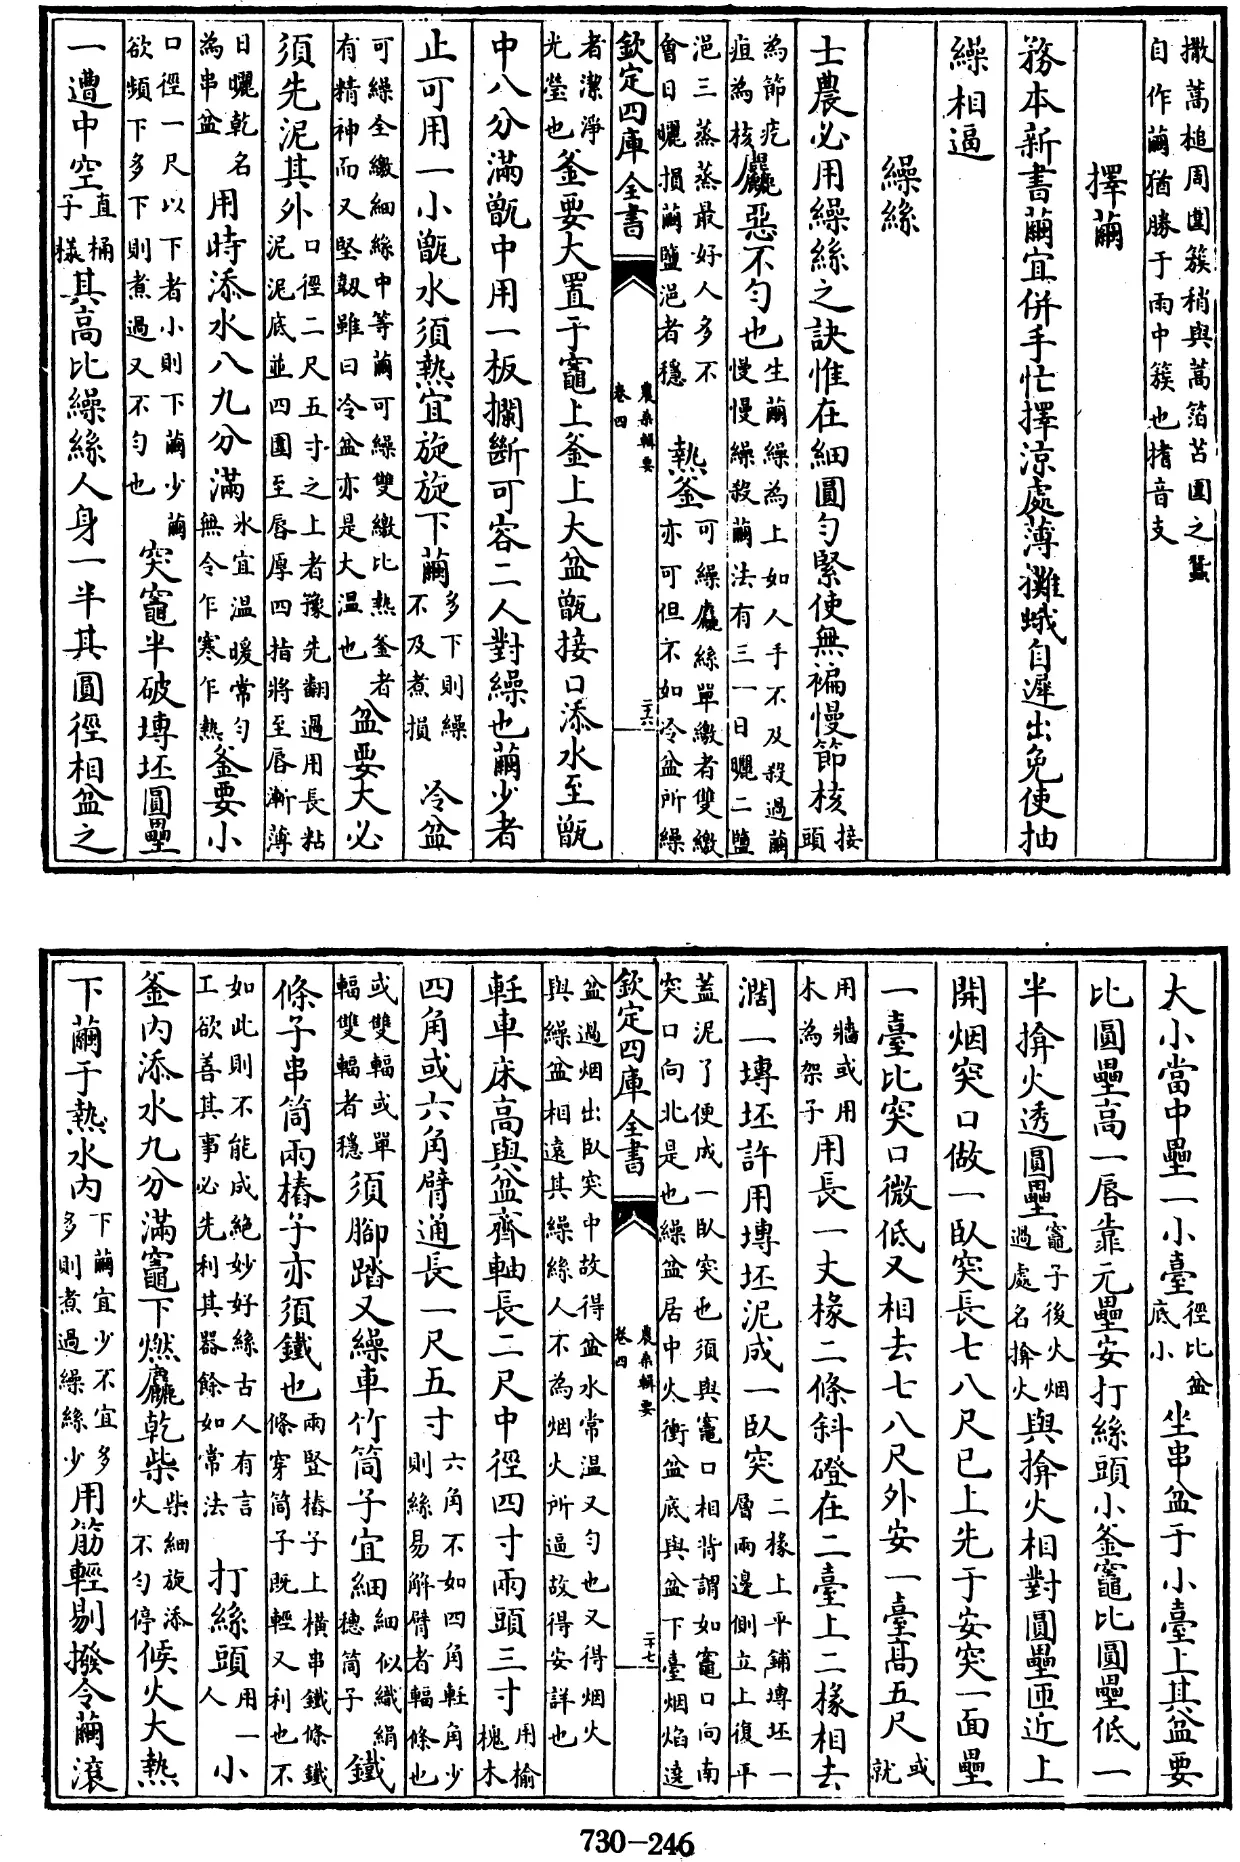 撒蒿槌周圍簇稍與蒿箔苫圍之蠶
自作繭猶勝于雨中簇也搘音支
擇繭
務本新書繭宜併手忙擇涼處薄攤蛾自遲出免使抽
繰相逼
繰絲
士農必用繰絲之訣惟在細圓勻緊使無褊慢節核接頭
為節疙疸為核麤惡不勻也生繭繰為上如人手不及殺過繭慢慢繰殺繭法有三一日曬二鹽
浥三蒸蒸最好人多不會日曬損繭鹽浥者穩 熱釜可繰麤絲單繳者雙繳亦可但不如冷盆所繰
欽定四庫全書 農桑輯要 卷四 二十六
者潔淨光瑩也釜要大置于竈上釜上大盆甑接口添水至甑
中八分滿甑中用一板攔斷可容二人對繰也繭少者
止可用一小甑水須熱宜旋旋下繭多下則繰不及煮損 冷盆
可繰全繳細絲中等繭可繰雙繳比熱釜者有精神而又堅韌雖曰冷盆亦是大溫也盆要大必
須先泥其外口徑二尺五寸之上者豫先翻過用長粘泥泥底並四圍至唇厚四指將至唇漸薄
日曬乾名為串盆用時添水八九分滿水宜溫暖常勻無令乍寒乍熱釜要小
口徑一尺以下者小則下繭少繭欲頻下多下則煮過又不勻也突竈半破塼坯圓壘
一遭中空直桶子樣其高比繰絲人身一半其圓徑相盆之
大小當中壘一小臺徑比盆底小坐串盆于小臺上其盆要
比圓壘高一唇靠元壘安打絲頭小釜竈比圓壘低一
半揜火透圓壘竈子後火烟過處名揜火與揜火相對圓壘匝近上
開烟突口做一臥突長七八尺已上先于安突一面壘
一臺比突口微低又相去七八尺外安一臺高五尺或就
用牆或用木為架子用長一丈椽二條斜磴在二臺上二椽相去
濶一塼坯許用塼坯泥成一臥突二椽上平鋪塼坯一層兩邊側立上復平
蓋泥了便成一臥突也須與竈口相背謂如竈口向南突口向北是也繰盆居中火衝盆底與盆下臺烟焰遶
欽定四庫全書 農桑輯要 卷四 二十七
盆過烟出臥突中故得盆水常溫又勻也又得烟火與繰盆相遠其繰絲人不為烟火所逼故得安詳也
軖車床高與盆齊軸長二尺中徑四寸兩頭三寸用榆槐木
四角或六角臂通長一尺五寸六角不如四角軖角少則絲易解臂者輻條也
或雙輻或單輻雙輻者穩須腳踏又繰車竹筒子宜細細似織絹穗筒子鐵
條子串筒兩樁子亦須鐵也兩豎樁子上橫串鐵條鐵條穿筒子既輕又利也不
如此則不能成絕妙好絲古人有言工欲善其事必先利其器餘如常法 打絲頭用一人小
釜內添水九分滿竈下燃麤乾柴柴細旋添火不勻停候火大熱
下繭于熱水內下繭宜少不宜多多則煮過繰絲少用筋輕剔撥令繭滾
730-246